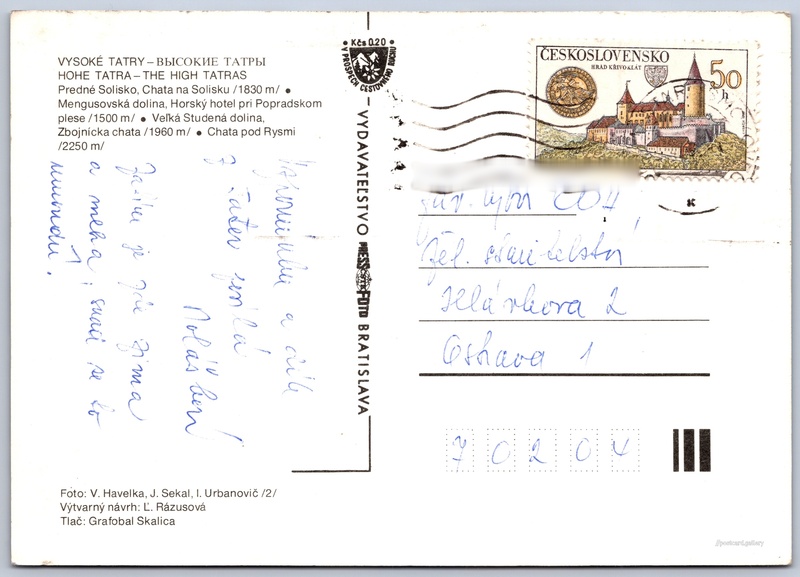 VYSOKÉ TATRY – ВЫСОКИЕ ТАТРЫ
HOHE TATRA – THE HIGH TATRAS
Predné Solisko, Chata na Solisku /1830 m/ ●
Mengusovská dolina, Horský hotel pri Popradskom
plese /1500 m/ ● Veľká Studená dolina,
Zbojnícka chata /1960 m/ ● Chata pod Rysmi
/2250 m/
Kčs 0.20
V PROSPECH CESTOVNÉHO RUCHU
ČESKOSLOVENSKO
HRAD KŘIVOKLÁT
50 h
VYDAVATEĽSTVO PRESSFOTO BRATISLAVA
a
z Tater posílá
je zde zima
a mlha, snad se to
ROH
Žel. stavitelství
2
Ostrava 1
70204
Foto: V. Havelka, J. Sekal, I. Urbanovič /2/
Výtvarný návrh: Ľ. Rázusová
Tlač: Grafobal Skalica
//postcard.gallery